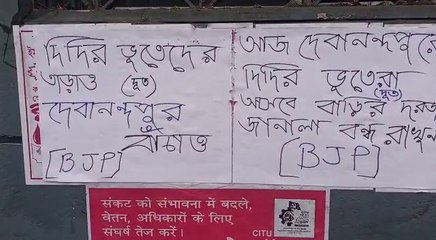 দিদির ভূতেদের
তাড়াও (দূত)
দেবানন্দপুর
বাঁচাও
[BJP]
আজ দেবানন্দপুরে
দিদির ভূতেরা
(দূত)
আসবে বাড়ির দরজা
জানালা বন্ধ রাখুন
[BJP]
संकट को संभावना में बदले,
वेतन, अधिकारों के लिए
संघर्ष तेज करें।
CITU